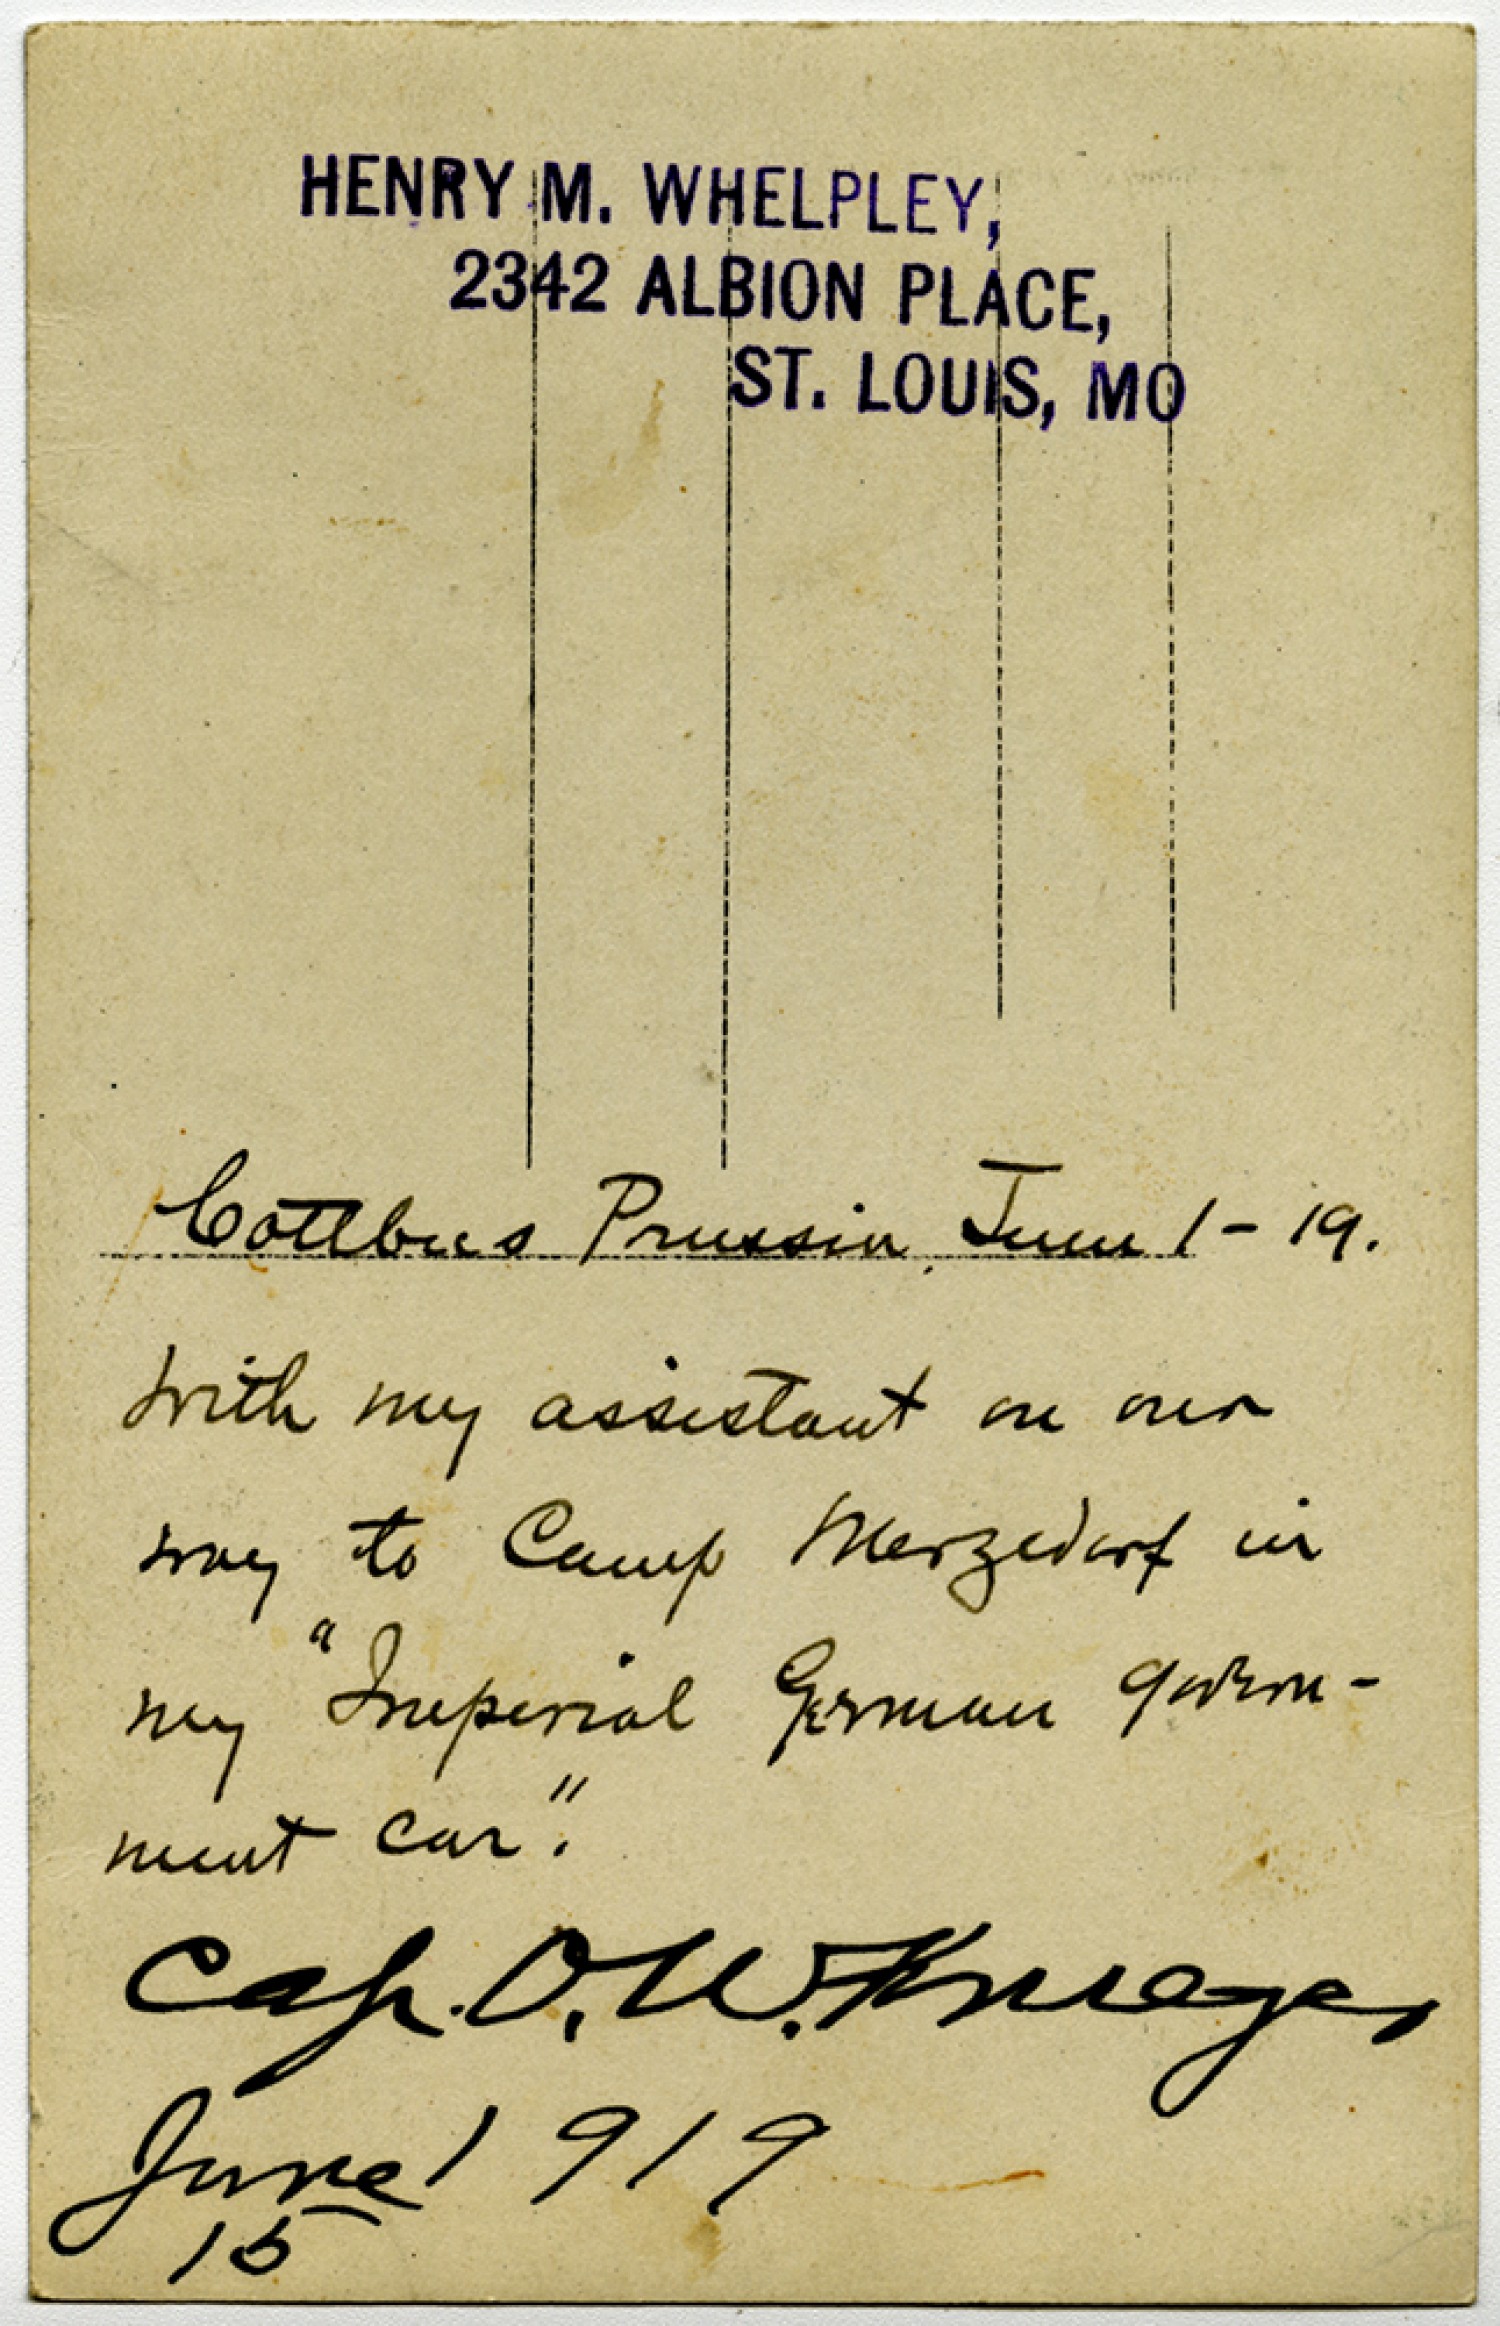 HENRY M. WHELPLEY,
2342 ALBION PLACE,
ST. LOUIS, MO
Cottbus Prussia, June 1-19.
With my assistant on our
way to Camp Merzedorf in
my "Imperial German govern-
ment car".
Cap. O. W. Krueger
June 1919
15